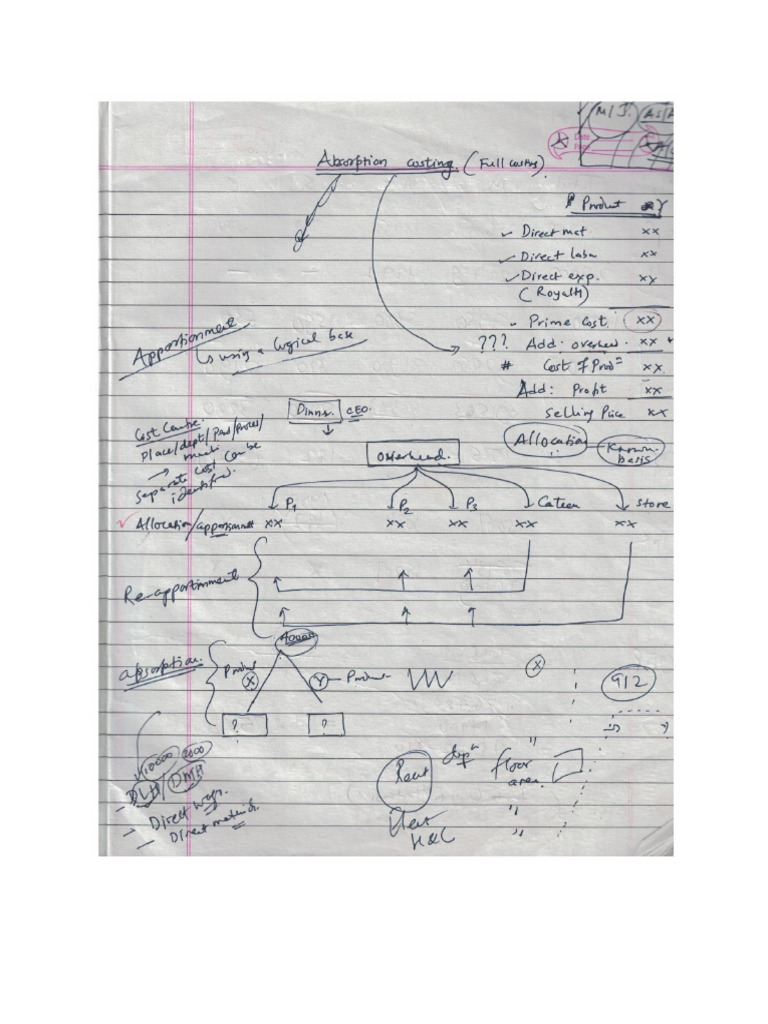 M/J.
Date
Page
Absorption costing. (Full costing).
Product Y
Direct mat xx
Direct labr xx
Direct exp. xy
(Royalty)
Prime cost. xx
??? Add: overhead. xx
# Cost of Prodⁿ xx.
Add: Profit xx
Selling Price xx
Apportionment
↳ using a logical base
Cost Centre:
Place/dept/
Separate cost can be
identified.
CEO.
Overhead.
Allocation
Known
basis
P1 P2 P3 Cateen Store
✓ Allocation/apportionmet xx xx xx xx xx
Re-apportionment
absorption.
Product X
Y — Product
X
912
? ?
10000 2000
DLH/DMH
- Direct wages.
- Direct materials.
Rent
floor
area.
"
"
"